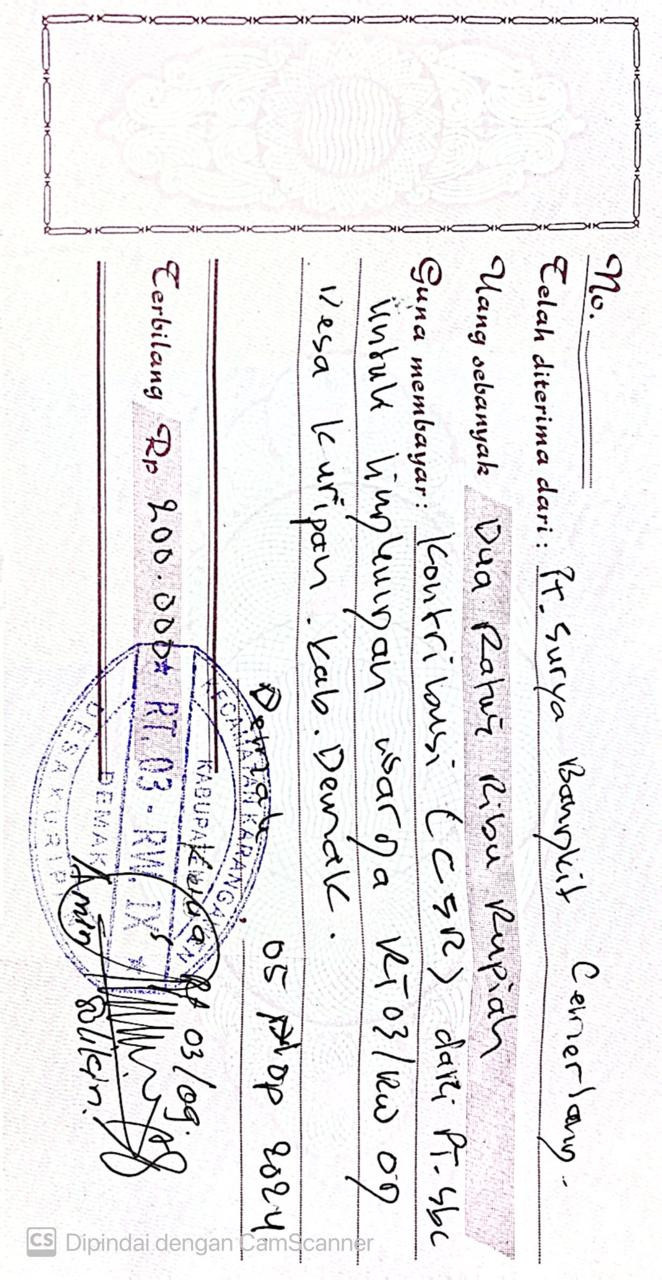 No.
Telah diterima dari : Pt. Surya Bangkit Cemerlang.
Uang sebanyak Dua Ratus Ribu Rupiah
Guna membayar : Kontribusi (CSR) dari Pt. Sbc
Untuk lingkungan warga RT 03/RW 09
Desa Kuripan. Kab. Demak.
Demak 05 2024
Ketua Rt 03/09.
Terbilang Rp 200.000
KECAMATAN KARANGA
KABUPATEN
RT. 03 - RW. IX
DEMAK
DESA KURIP
Amin
CS Dipindai dengan CamScanner